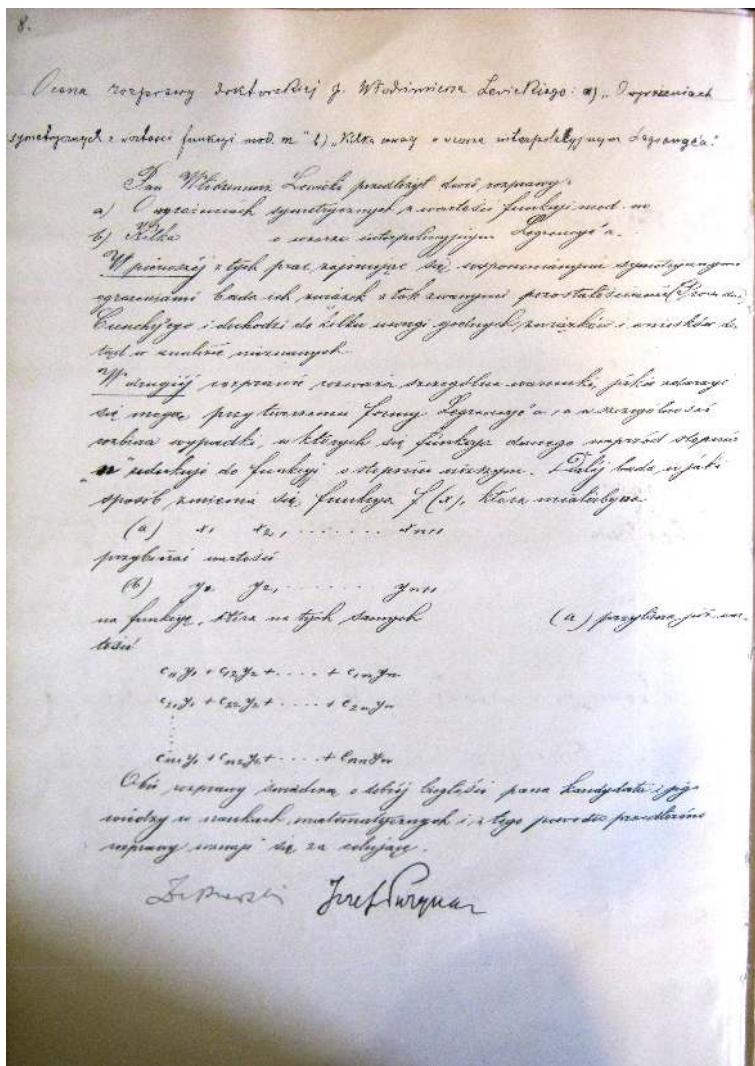 8.
Ocena rozprawy doktorskiej p. Włodzimierza Levickiego: a) „O wyrażeniach
symetrycznych z wartości funkcyi mod. m" b) „Kilka uwag o wzorze interpolacyjnym Lagrange'a."
Pan Włodzimierz Lewicki przedłożył dwie rozprawy:
a) O wyrażeniach symetrycznych z wartości funkcyi mod. m
b) Kilka o wzorze interpolacyjnym Lagrange'a.
W pierwszej z tych prac zajmując się wspomnianymi symetrycznymi
wyrażeniami bada ich związek z tak zwanymi pozostałościami
Cauchy'ego i dochodzi do kilku uwagi godnych związków i wniosków do-
tąd w analizie nieznanych.
W drugiej rozprawie rozważa szczególne warunki, jakie zdarzyć
się mogą przy tworzeniu formy Lagrange'a, a w szczególności
rozbiera wypadki, w których się funkcya danego naprzód stopnia
"n" redukuje do funkcyi o stopniu niższym. Dalej bada, w jaki
sposób zmienia się funkcya f(x), która miałaby na
(a) x₁ x₂, ........ xn+1
przybierać wartości
(b) y₁ y₂, ........ yn+1
na funkcyę, która na tych samych (a) przybiera już war-
tości
c₁₁y₁ + c₁₂y₂ + ..... + c₁ₙyₙ
c₂₁y₁ + c₂₂y₂ + ..... + c₂ₙyₙ
cₙ₁y₁ + cₙ₂y₂ + ..... + cₙₙyₙ
Obie rozprawy świadczą o dobrej biegłości pana kandydata i jego
wiedzy w naukach matematycznych i z tego powodu przedłożone
rozprawy uznaje się za celujące.
Józef Puzyna